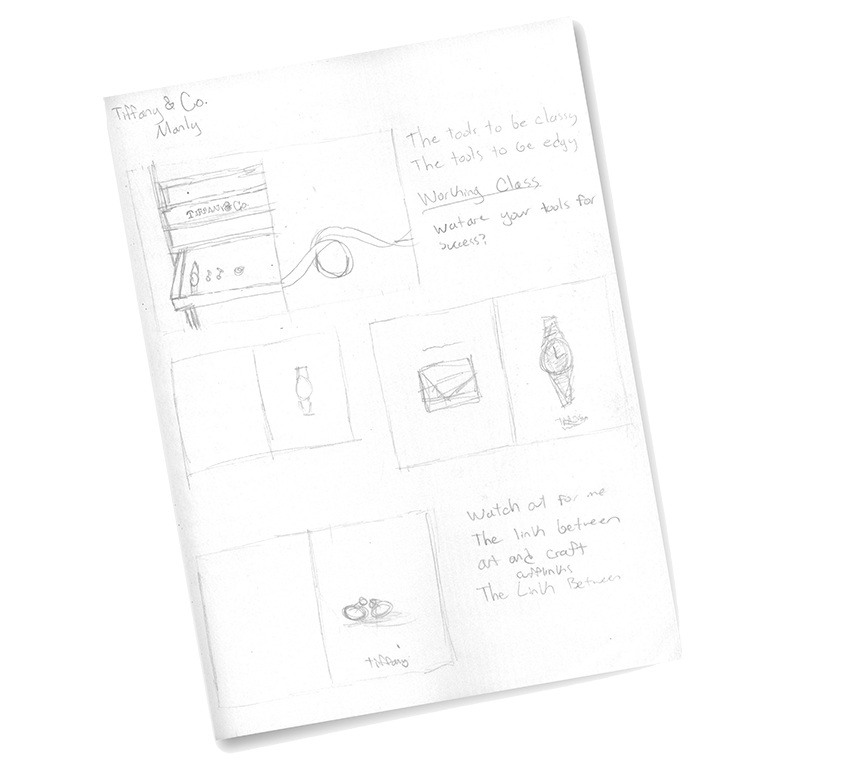 Tiffany & Co.
Manly
The tools to be classy
The tools to be edgy
Working Class
Wat are your tools for
success?
TIFFANY & Co.
Watch out for me
The link between
art and craft
cufflinks
The Link Between
Tiffany